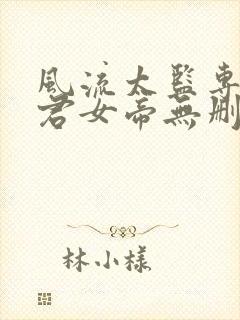 風流太監專
君女帝無刪
林小樣